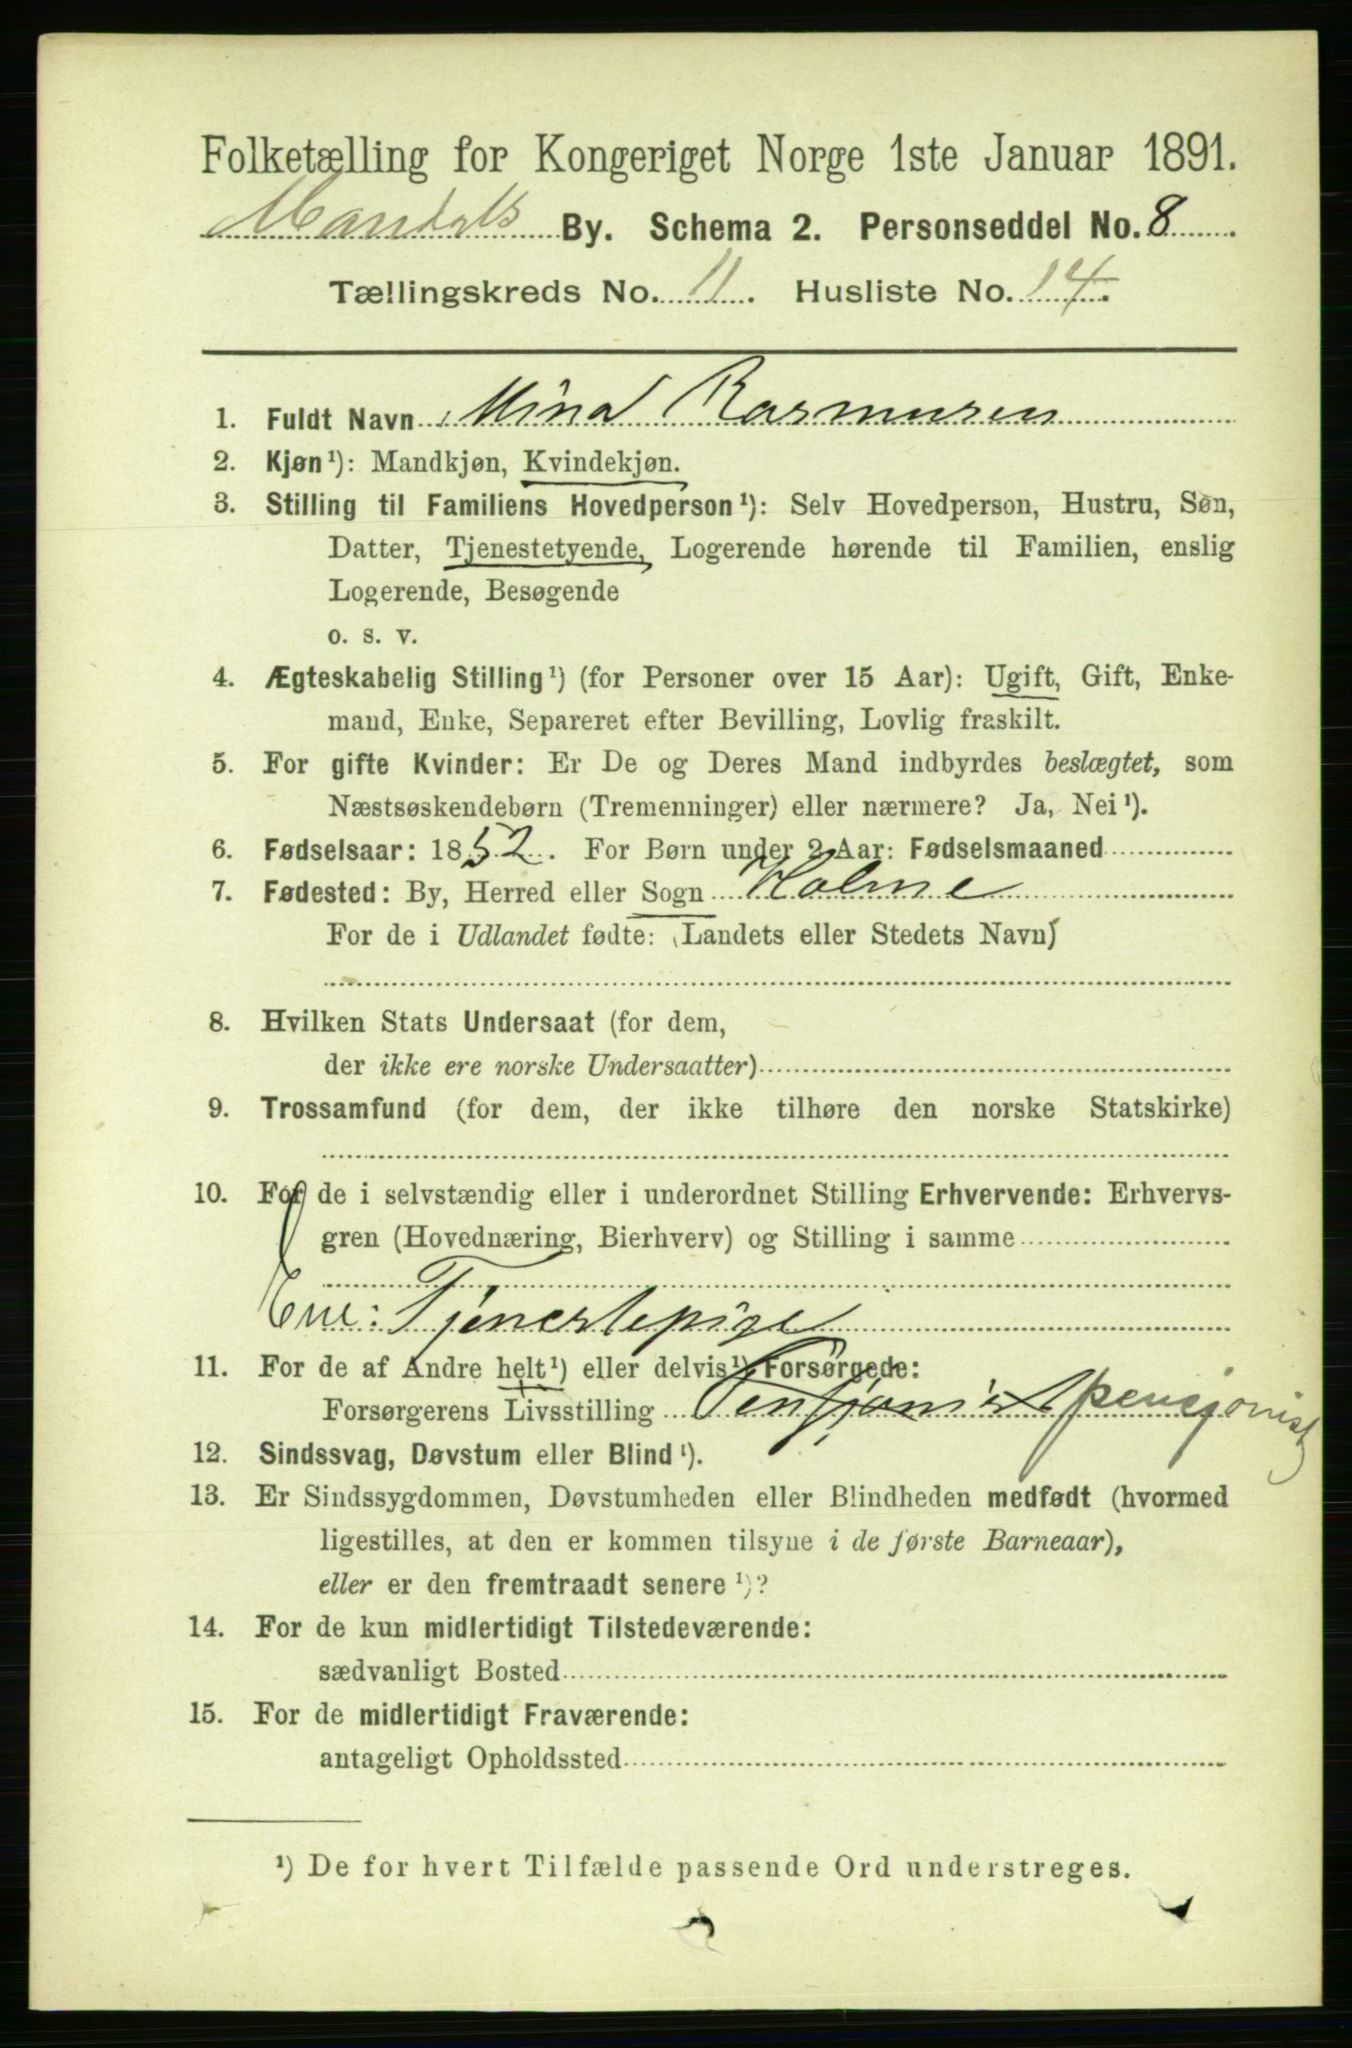 Folketælling for Kongeriget Norge 1ste Januar 1891.
Mandals By. Schema 2. Personseddel No. 8
Tællingskreds No. 11. Husliste No. 14.
1. Fuldt Navn Mina Rasmusen
2. Kjøn¹): Mandkjøn, Kvindekjøn.
3. Stilling til Familiens Hovedperson¹): Selv Hovedperson, Hustru, Søn,
Datter, Tjenestetyende, Logerende hørende til Familien, enslig
Logerende, Besøgende
o. s. v.
4. Ægteskabelig Stilling¹) (for Personer over 15 Aar): Ugift, Gift, Enke-
mand, Enke, Separeret efter Bevilling, Lovlig fraskilt.
5. For gifte Kvinder: Er De og Deres Mand indbyrdes beslægtet, som
Næstsøskendebørn (Tremenninger) eller nærmere? Ja, Nei¹).
6. Fødselsaar: 1852. For Børn under 2 Aar: Fødselsmaaned
7. Fødested: By, Herred eller Sogn Holme
For de i Udlandet fødte: (Landets eller Stedets Navn)
8. Hvilken Stats Undersaat (for dem,
der ikke ere norske Undersaatter)
9. Trossamfund (for dem, der ikke tilhøre den norske Statskirke)
10. For de i selvstændig eller i underordnet Stilling Erhvervende: Erhvervs-
gren (Hovednæring, Bierhverv) og Stilling i samme
Tjenestepige
11. For de af Andre helt¹) eller delvis¹) Forsørgede:
Forsørgerens Livsstilling Pensjonist pensjonist
12. Sindssvag, Døvstum eller Blind¹).
13. Er Sindssygdommen, Døvstumheden eller Blindheden medfødt (hvormed
ligestilles, at den er kommen tilsyne i de første Barneaar),
eller er den fremtraadt senere¹)?
14. For de kun midlertidigt Tilstedeværende:
sædvanligt Bosted
15. For de midlertidigt Fraværende:
antageligt Opholdssted
¹) De for hvert Tilfælde passende Ord understreges.